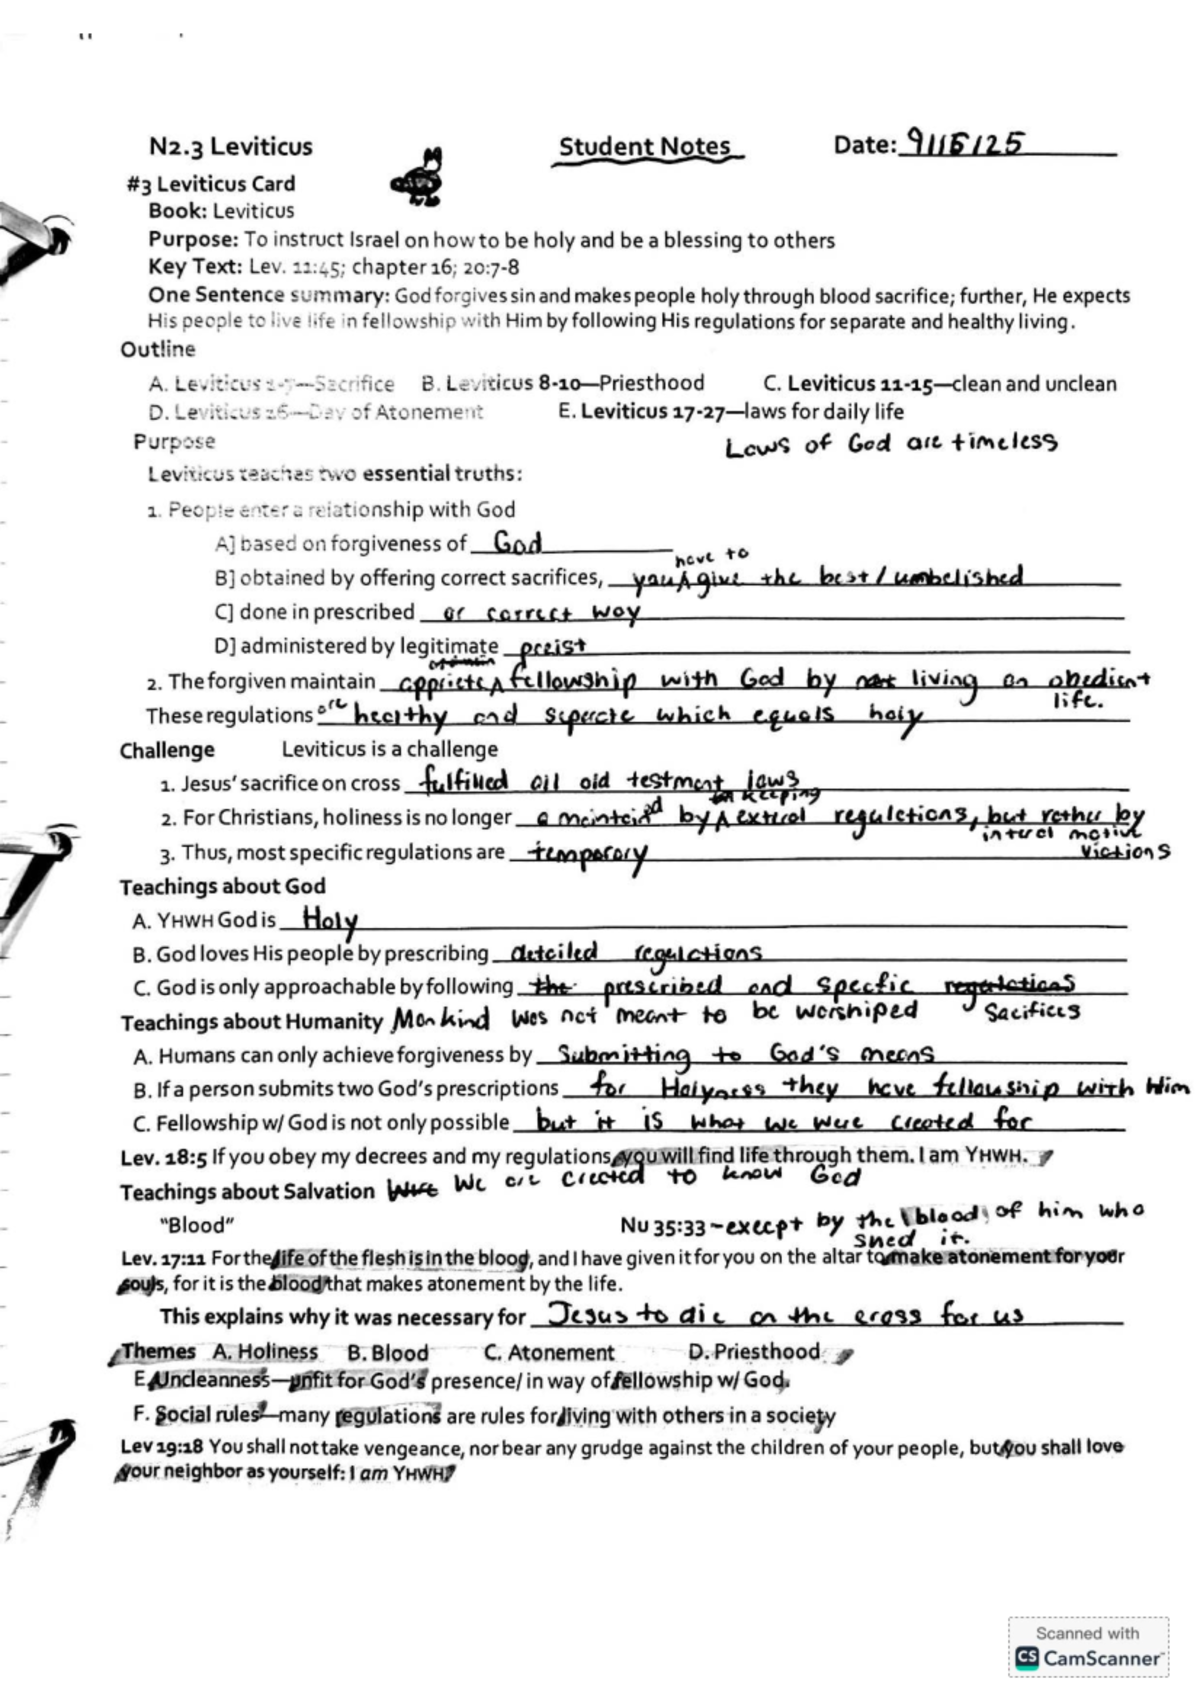 N2.3 Leviticus Student Notes Date: 9/15/25
#3 Leviticus Card
Book: Leviticus
Purpose: To instruct Israel on how to be holy and be a blessing to others
Key Text: Lev. 11:45; chapter 16; 20:7-8
One Sentence summary: God forgives sin and makes people holy through blood sacrifice; further, He expects
His people to live life in fellowship with Him by following His regulations for separate and healthy living.
Outline
A. Leviticus 1-7—Sacrifice B. Leviticus 8-10—Priesthood C. Leviticus 11-15—clean and unclean
D. Leviticus 16—Day of Atonement E. Leviticus 17-27—laws for daily life
Purpose Laws of God are timeless
Leviticus teaches two essential truths:
1. People enter a relationship with God
A] based on forgiveness of God
B] obtained by offering correct sacrifices, you have to give the best / umbelished
C] done in prescribed or correct way
D] administered by legitimate preist
2. The forgiven maintain fellowship with God by living an obedient life.
These regulations are healthy and seperate which equals holy
Challenge Leviticus is a challenge
1. Jesus' sacrifice on cross fulfilled all old testment laws
2. For Christians, holiness is no longer a maintaind by keeping extiral regulations, but rather by
interal motive
3. Thus, most specific regulations are temporary victions
Teachings about God
A. YHWH God is Holy
B. God loves His people by prescribing detailed regulations
C. God is only approachable by following the prescribed and specfic regulations
Teachings about Humanity Mankind was not meant to be worshiped Sacifices
A. Humans can only achieve forgiveness by Submitting to God's means
B. If a person submits two God's prescriptions for Holyness they have fellowship with Him
C. Fellowship w/ God is not only possible but it is what we were created for
Lev. 18:5 If you obey my decrees and my regulations, you will find life through them. I am YHWH.
Teachings about Salvation We are created to know God
"Blood" Nu 35:33 - execpt by the blood of him who
shed it.
Lev. 17:11 For the life of the flesh is in the blood, and I have given it for you on the altar to make atonement for your
souls, for it is the blood that makes atonement by the life.
This explains why it was necessary for Jesus to die on the cross for us
Themes A. Holiness B. Blood C. Atonement D. Priesthood
E. Uncleanness—unfit for God's presence/ in way of fellowship w/ God.
F. Social rules—many regulations are rules for living with others in a society
Lev 19:18 You shall not take vengeance, nor bear any grudge against the children of your people, but you shall love
your neighbor as yourself: I am YHWH.
Scanned with
CS CamScanner